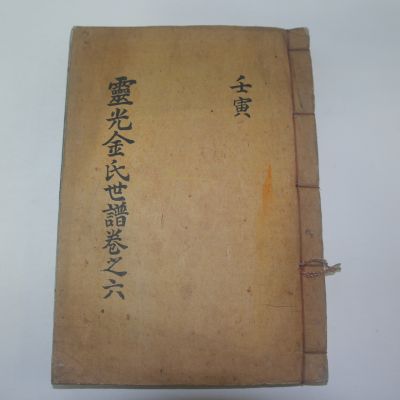 壬寅
靈光金氏世譜卷之六